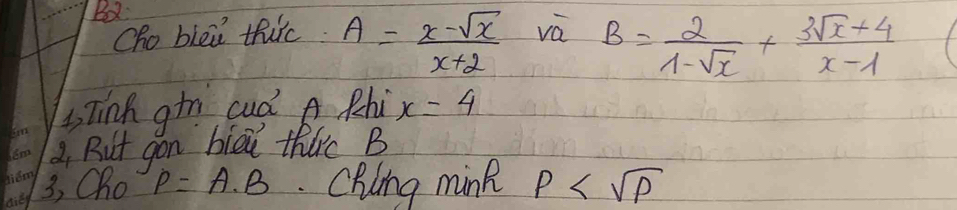 B2.
Cho biểu thức : A = (x-√x)/(x+2) và B = 2/(1-√x) + (3√x+4)/(x-1)
1, Tính gtri của A khi x = 4
2, Rút gọn biểu thức B
3, Cho P = A.B . Chứng minh P < √P